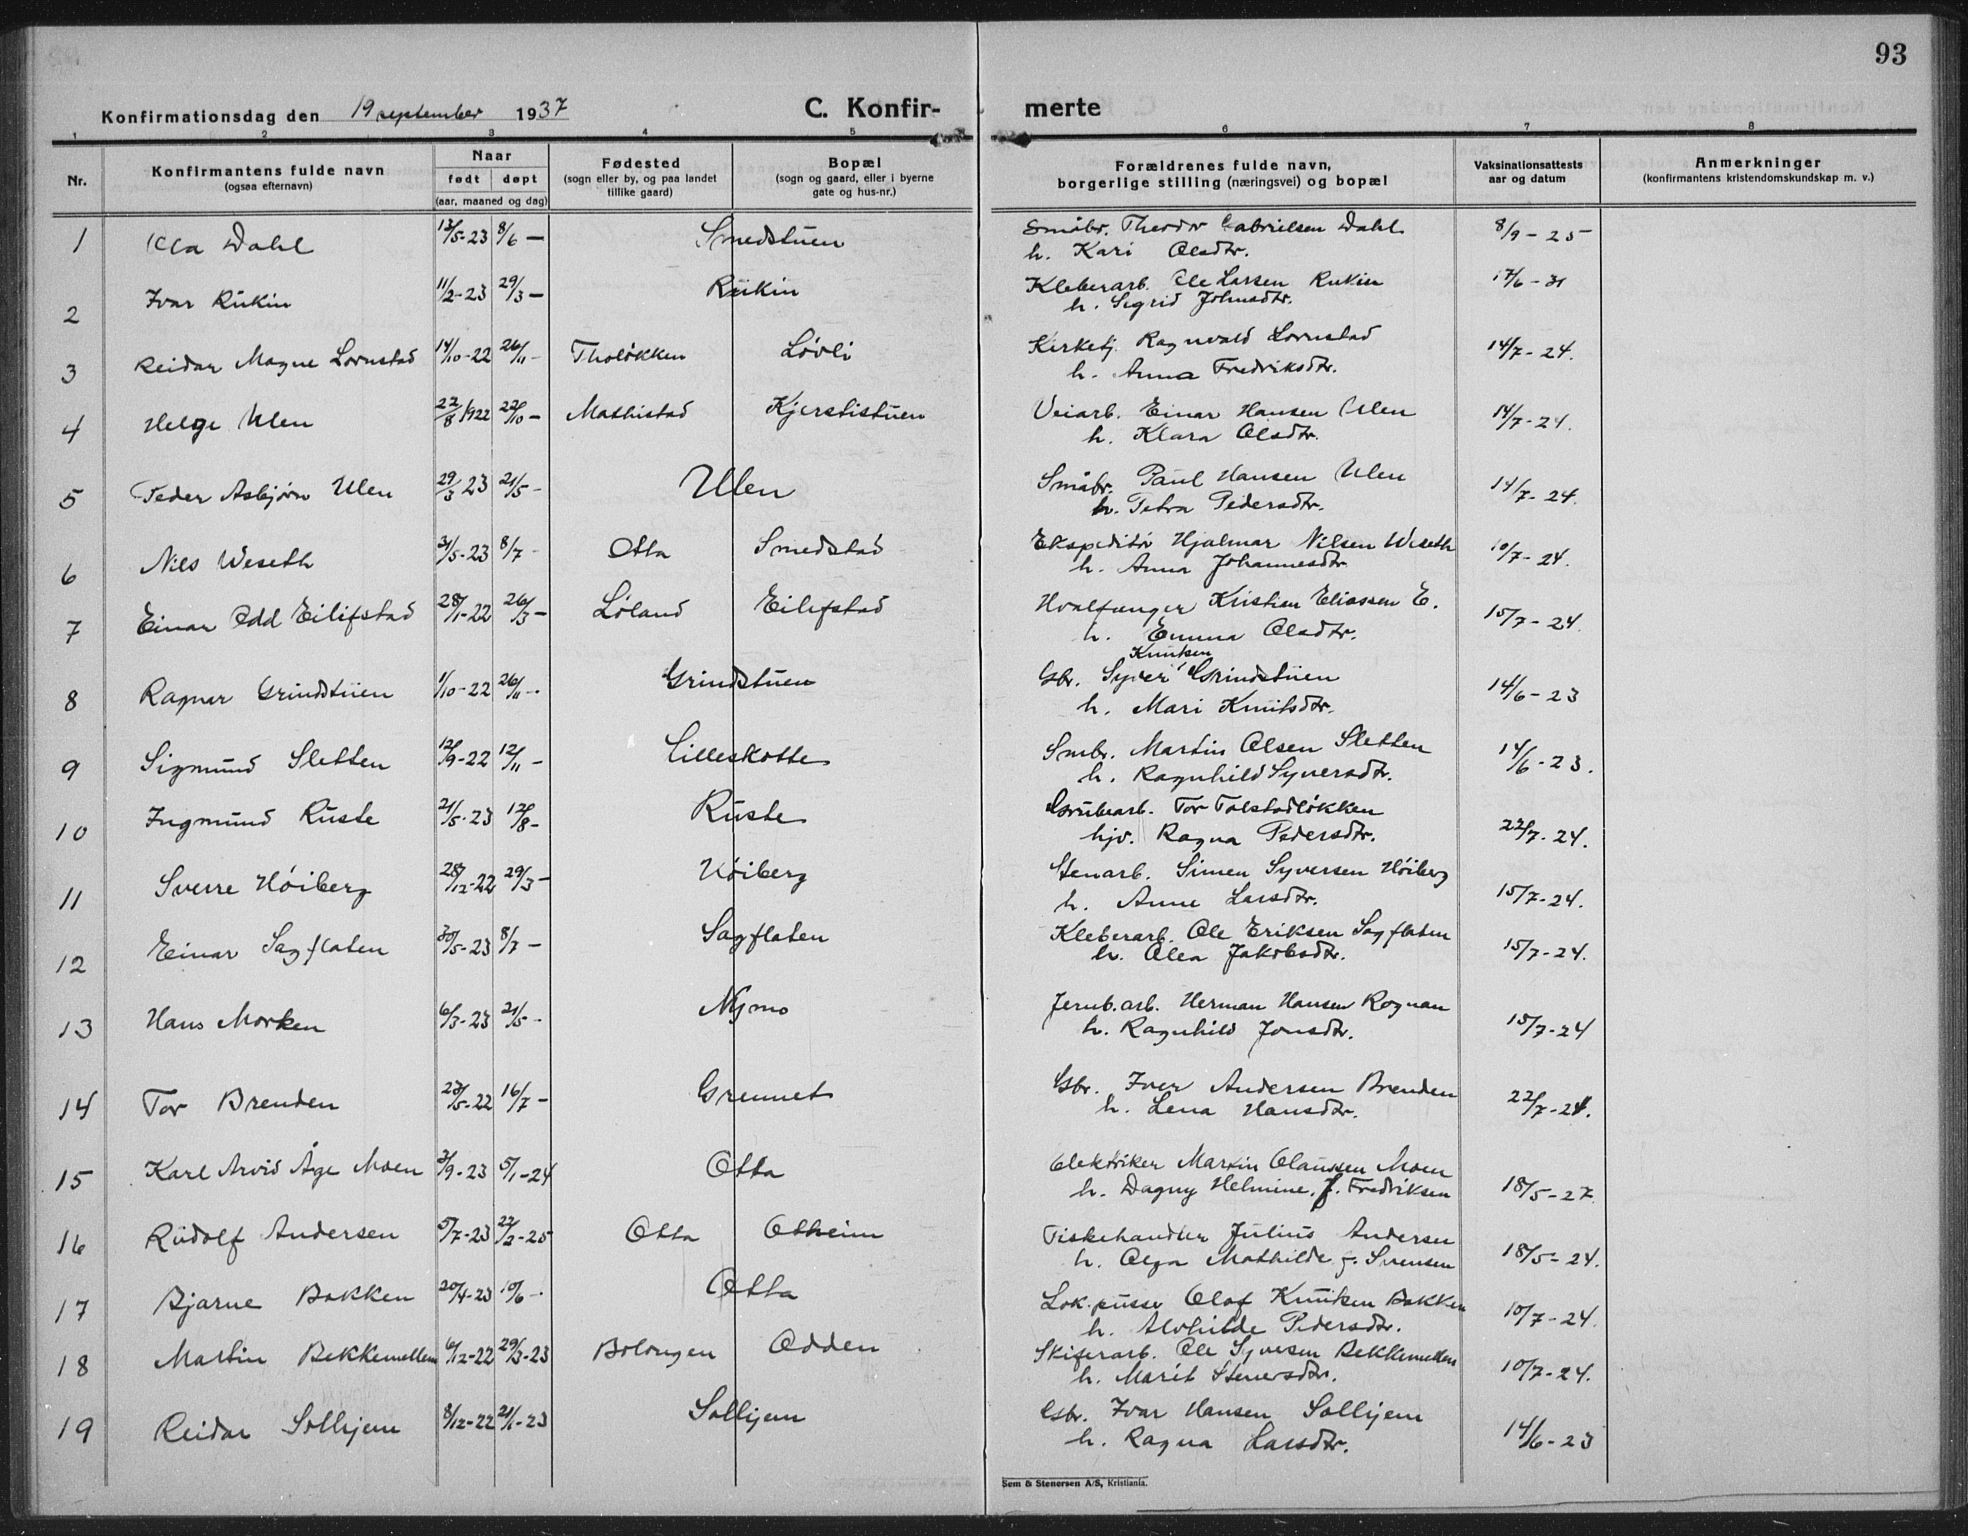 93
Konfirmationsdag den 19 september 1937
C. Konfirmerte
1 2 3 4 5 6 7 8
Nr.
Konfirmantens fulde navn
(ogsaa efternavn)
Naar
født døpt
(aar, maaned og dag)
Fødested
(sogn eller by, og paa landet
tillike gaard)
Bopæl
(sogn og gaard, eller i byerne
gate og hus-nr.)
Forældrenes fulde navn,
borgerlige stilling (næringsvei) og bopæl
Vaksinationsattests
aar og datum
Anmerkninger
(konfirmantens kristendomskundskap m. v.)
1 Ola Dahl 13/5-23 8/6 - Smedstuen Småbr. Theodor Gabrielsen Dahl 8/9-25
h. Kari Olsdtr.
2 Ivar Rukin 11/2-23 29/3 - Rukin Kleberarb. Ole Larsen Rukin 17/6-31
h. Sigrid Johnsdtr.
3 Reidar Magne Lornstad 14/10-22 26/11 - Tholøkken Løvli Kirketj. Ragnvald Lornstad 14/7-24.
h. Anna Fredriksdtr.
4 Helge Ulen 22/8 1922 22/10 - Mathistad Kjerstistuen Veiarb. Einar Hansen Ulen 14/7-24.
h. Klara Olsdtr.
5 Peder Asbjørn Ulen 29/3 23 21/5 - Ulen Småbr. Paul Hansen Ulen 14/7-24.
h. Petra Pedersdtr.
6 Nils Weseth 31/5-23 8/7 - Otta Smedstad Ekspeditør Hjalmar Nilsen Weseth 10/7-24.
h. Anna Johannesdtr
7 Einar Odd Eilifstad 28/1-22 26/3 - Løland Eilifstad Hvalfanger Kristian Eliassen E. 15/7-24.
h. Emma Olsdtr.
8 Ragnar Grindstuen 1/10-22 26/11 - Grindstuen Gbr. Syver Knutsen Grindstuen 14/6-23
h. Mari Knutsdtr.
9 Sigmund Sletten 12/9-22 12/11 - Lilleskotte Smbr. Martin Olsen Sletten 14/6-23.
h. Ragnhild Syversdtr.
10 Ingmund Ruste 21/5-23 12/8 - Ruste Grubearb. Tor Tolstadløkken 22/7-24.
hjv. Ragna Pedersdtr.
11 Sverre Høiberg 28/12-22 29/3 - Høiberg Stenarb. Simen Syversen Høiberg 15/7-24.
h. Anne Larsdtr.
12 Einar Sagflaten 30/5-23 8/7 - Sagflaten Kleberarb. Ole Eriksen Sagflaten 15/7-24.
h. Olea Jakobsdtr.
13 Hans Morken 6/3-23 21/5 - Nymo Jernb.arb. Herman Hansen Rognan 15/7-24
h. Ragnhild Jonsdtr.
14 Tor Brenden 23/5-22 16/7 - Grennet Gbr. Iver Andersen Brenden 22/7-24.
h. Lena Hansdtr.
15 Karl Arvid Åge Moen 3/9-23 5/1-24 Otta Elektriker Martin Claussen Moen 18/5-27.
h. Dagny Helmine, f. Fredriksen
16 Rudolf Andersen 5/7-23 22/2-25 Otta Otheim Fiskehandler Julius Andersen 18/5-24.
h. Olga Mathilde f. Svensen
17 Bjarne Bakken 20/4-23 10/6 - Otta Lok.pusser Olaf Knutsen Bakken 10/7-24.
h. Alvhilde Pedersdtr.
18 Martin Bekkemellem 6/12-22 29/3-23 Bolongen Odden Skiferarb. Ole Syversen Bekkemellem 10/7-24.
h. Marit Stenersdtr.
19 Reidar Solhjem 8/12-22 21/1-23 Solhjem Gbr. Ivar Hansen Solhjem 14/6-23
h. Ragna Larsdtr.
Sem & Stenersen A/S, Kristiania.